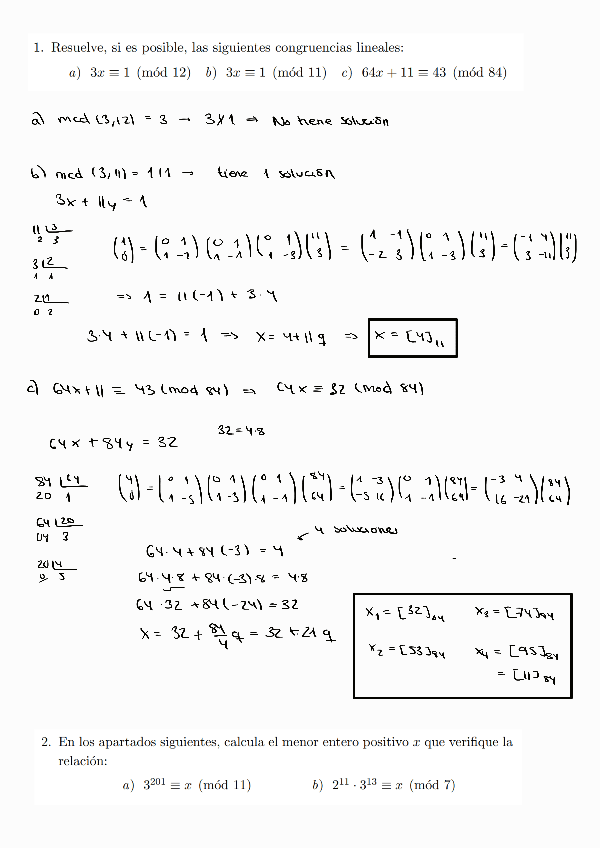 1. Resuelve, si es posible, las siguientes congruencias lineales:
a) 3x ≡ 1 (mód 12) b) 3x ≡ 1 (mód 11) c) 64x + 11 ≡ 43 (mód 84)
a) mcd (3,12) = 3 → 3∤1 ⇒ No tiene solución
b) mcd (3,11) = 1|1 → tiene 1 solución
3x + 11y = 1
11 |3
2 3
3 |2
1 1
2 |1
0 2
(1 0) = (0 1 1 -2) (0 1 1 -1) (0 1 1 -3) (11 3) = (1 -1 -2 3) (0 1 1 -3) (11 3) = (-1 4 3 -11) (11 3)
⇒ 1 = 11(-1) + 3·4
3·4 + 11(-1) = 1 ⇒ x = 4+11q ⇒ x = [4]11
c) 64x+11 ≡ 43 (mod 84) ⇒ 64x ≡ 32 (mod 84)
32 = 4·8
64x + 84y = 32
84 |64
20 1
64 |20
04 3
20 |4
0 5
(4 0) = (0 1 1 -5) (0 1 1 -3) (0 1 1 -1) (84 64) = (1 -3 -5 16) (0 1 1 -1) (84 64) = (-3 4 16 -21) (84 64)
4 soluciones
64·4 + 84(-3) = 4
64·4·8 + 84·(-3)·8 = 4·8
64·32 + 84(-24) = 32
x = 32 + 84/4 q = 32 + 21q
x1 = [32]84 x3 = [74]84
x2 = [53]84 x4 = [95]84
= [11]84
2. En los apartados siguientes, calcula el menor entero positivo x que verifique la
relación:
a) 3^201 ≡ x (mód 11) b) 2^11 · 3^13 ≡ x (mód 7)